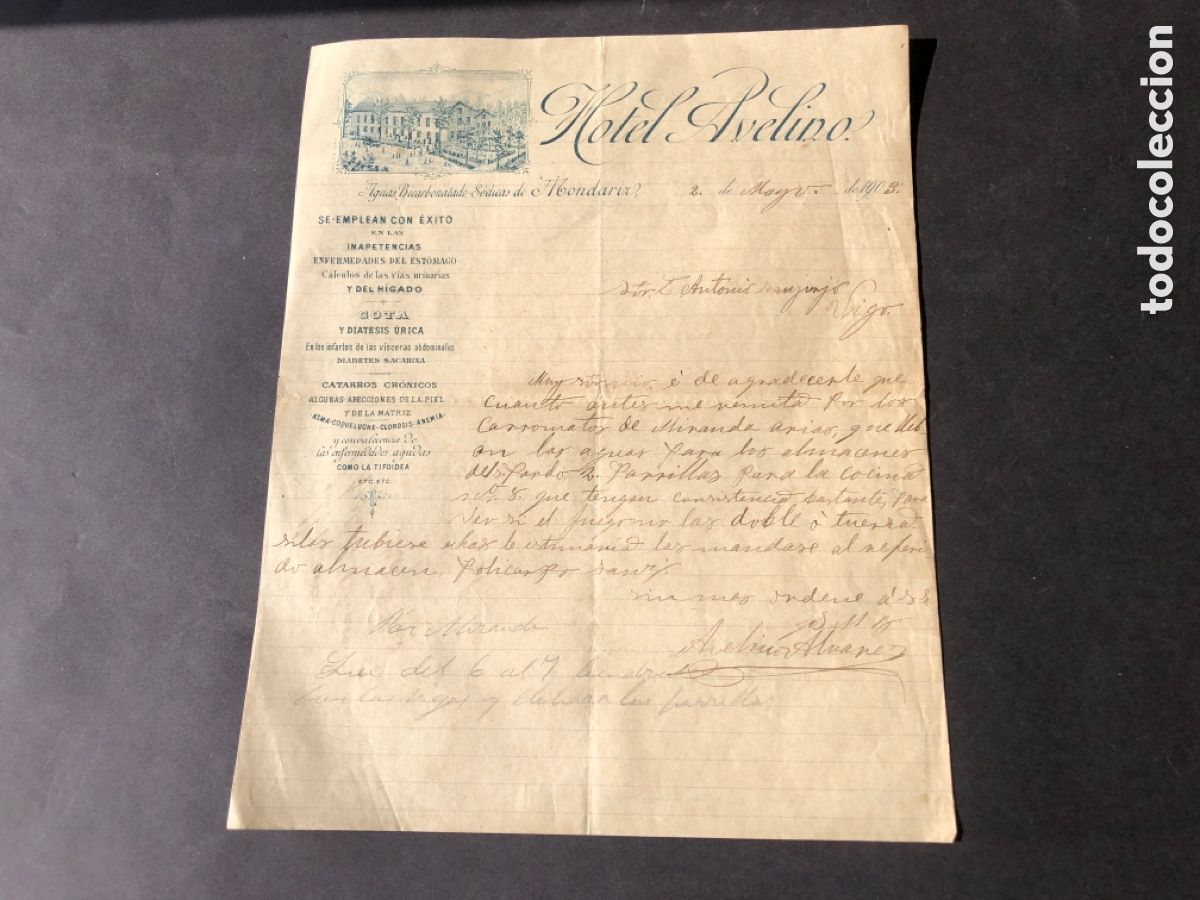 Hotel Avelino.
Aguas Bicarbonatado-Sódicas de Mondariz
2 de Mayo de 1903.
SE EMPLEAN CON ÉXITO
EN LAS
INAPETENCIAS
ENFERMEDADES DEL ESTÓMAGO
Cálculos de las vías urinarias
Y DEL HÍGADO
GOTA
Y DIATESIS ÚRICA
En los infartos de las vísceras abdominales
DIABETES SACARINA
CATARROS CRÓNICOS
ALGUNAS AFECCIONES DE LA PIEL
Y DE LA MATRIZ
ASMA-COQUELUCHE-CLOROSIS-ANEMIA
y convalecencia de
las enfermedades agudas
COMO LA TIFOIDEA
ETC. ETC.
Antonio
Vigo.
Muy é de agradecerle que
cuanto antes me remita por los
Carromatos de Miranda Arias, que
las aguas para los almacenes
2 Parrillas para la cocina
nº 8. que tengan consistencia bastante, para
Ver si el fuego no las doble ó tuerza
silas tubiese echas le estimaria las mandase al referi-
do almacen. Policarpo
sin mas ordene á
Avelino Alvarez
Por Miranda
del 6 al 7
y las parrillas
todocoleccion